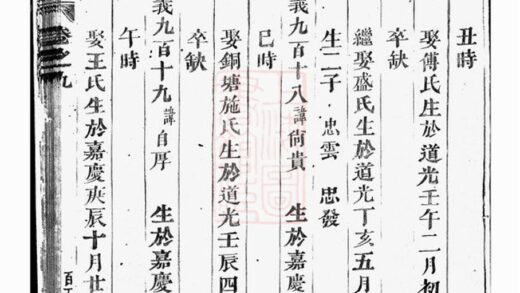 丑時
娶傅氏生於道光壬午二月初
卒缺
繼娶盛氏生於道光丁亥五月
生二子 忠雲 忠發
義九百十八 諱尚貴 生於嘉慶
巳時
娶銅塘施氏生於道光壬辰四
卒缺
義九百十九 諱自厚 生於嘉慶
午時
娶王氏生於嘉慶庚辰十月廿
卷之九